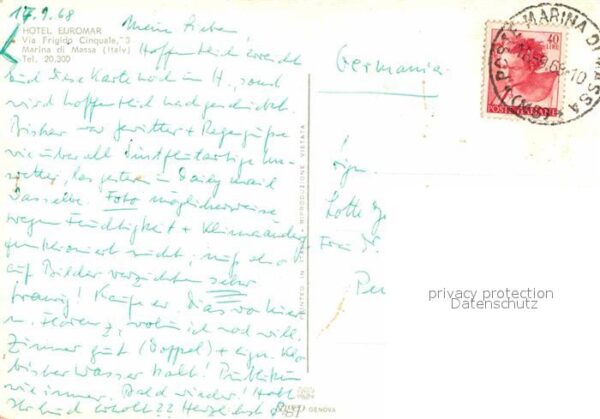 17.9.68
Meine Lieben!
HOTEL EUROMAR
Via Frigido Cinquale, 3
Marina di Massa (Italy)
Tel. 20.300
Hoffentlich erreicht
Euch diese Karte noch in H., sonst
wird hoffentlich nachgeschickt.
Bisher war Gewitter + Regengüsse
wie überall sintflutartige Un-
wetter, las gestern in Daily Mail
dasselbe. Foto möglicherweise
wegen Feuchtigkeit + Klimaänder
funktioniert nicht, muß also
auf Bilder verzichten sehr
traurig! Kaufe er. Das vor hier
n. Florenz, wohin ich noch will.
Zimmer gut (Doppel) + eigen. Klo
bisher Wasser kalt! Publikum
wie immer. Bald wieder!
Herzlichst
PRINTED IN ITALY - RIPRODUZIONE VIETATA
GENOVA
40
LIRE
POSTE ITALIANE
POSTE MARINA DI MASSA
Germania
Lotte
Frau Dr.
privacy protection
Datenschutz